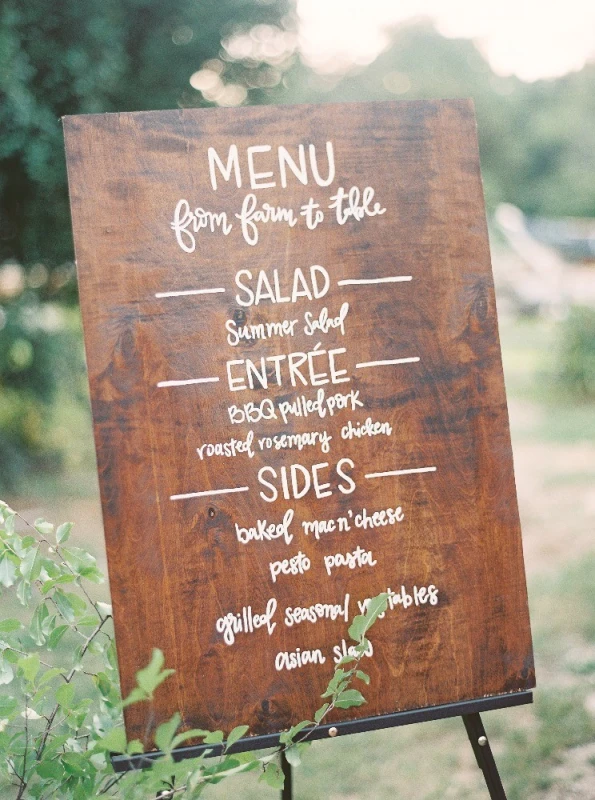 MENU
from farm to table
SALAD
Summer Salad
ENTRÉE
BBQ pulled pork
roasted rosemary chicken
SIDES
baked mac n' cheese
pesto pasta
grilled seasonal vegetables
asian slaw